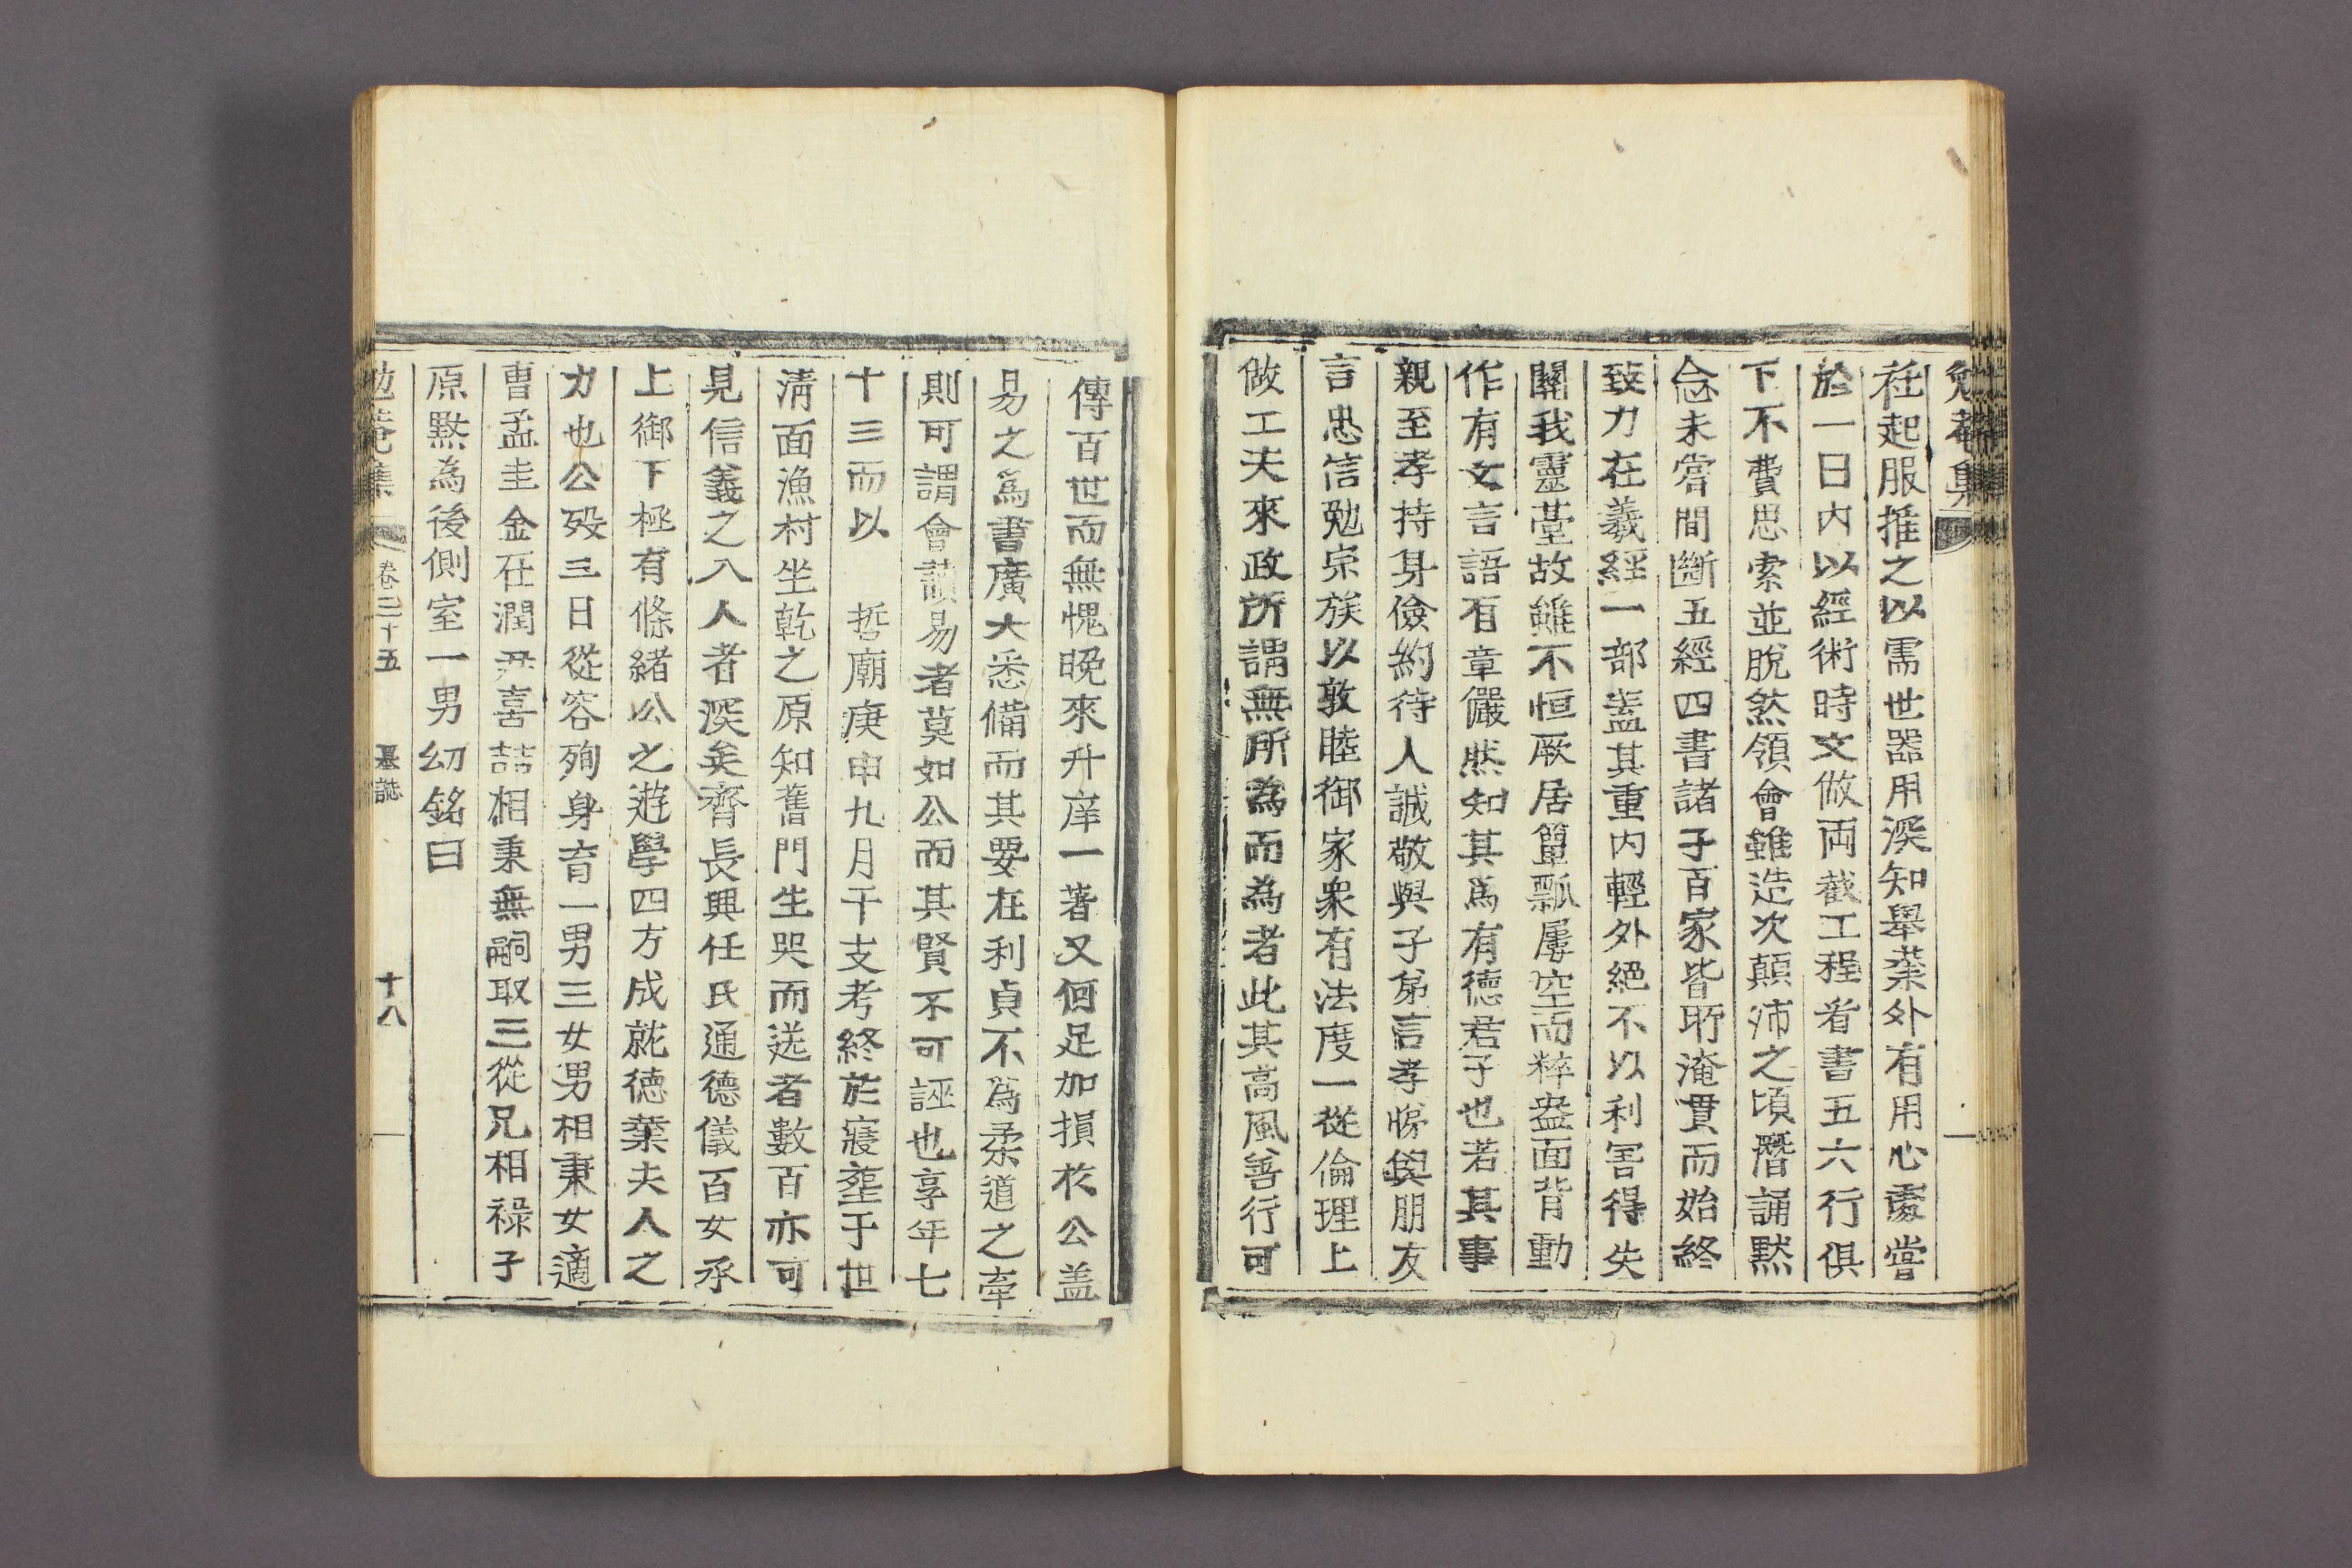 勉菴集
在起服推之以需世器用深知舉業外有用心處嘗
於一日內以經術時文做兩截工程看書五六行俱
下不費思索並脫然領會雖造次顚沛之頃潛誦默
念未嘗間斷五經四書諸子百家皆所淹貫而始終
致力在羲經一部盖其重內輕外絕不以利害得失
關我靈臺故雖不恒厥居簞瓢屢空而粹盎面背動
作有文言語有章儼然知其爲有德君子也若其事
親至孝持身儉約待人誠敬與子弟言孝悌與朋友
言忠信勉宗族以敦睦御家衆有法度一從倫理上
做工夫來政所謂無所為而為者此其高風善行可
傳百世而無愧晩來升庠一著又何足加損於公盖
易之爲書廣大悉備而其要在利貞不爲柔道之牽
則可謂會讀易者莫如公而其賢不可誣也享年七
十三而以　哲廟庚申九月干支考終於寢塟于世
淸面漁村坐乾之原知舊門生哭而送者數百亦可
見信義之入人者深矣齊長興任氏通德儀百女承
上御下極有條緖公之遊學四方成就德業夫人之
力也公歿三日從容殉身育一男三女男相秉女適
曹孟圭金在潤尹喜喆相秉無嗣取三從兄相祿子
原黙為後側室一男幼銘曰
勉菴集　卷三十五　墓誌　十八